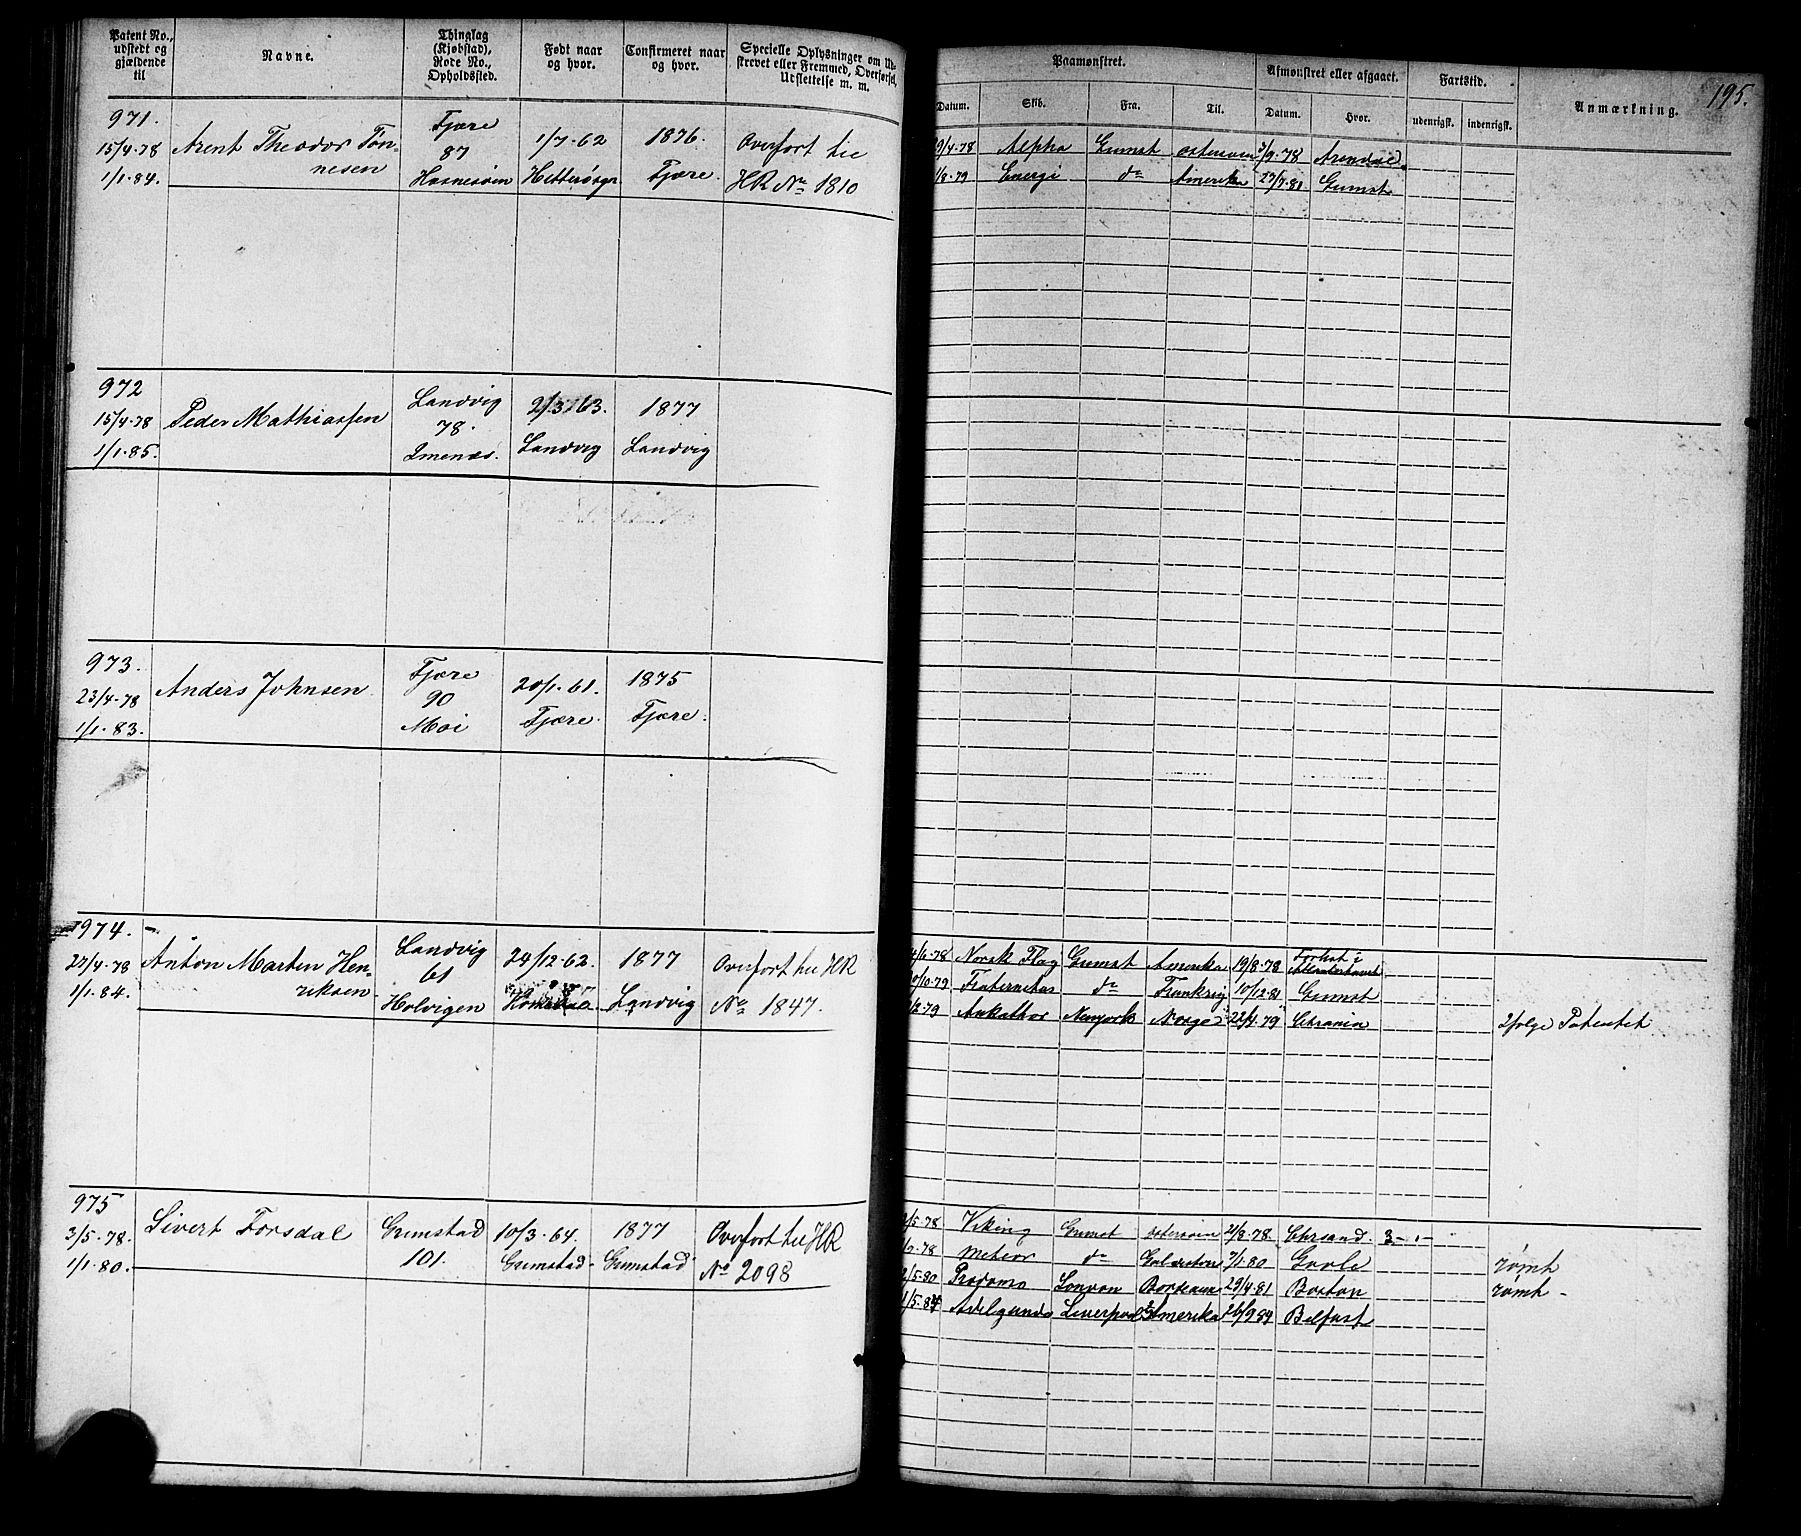 Patent No., udstedt og gjældende til
Navne.
Thinglag (Kjøbstad), Rode No., Opholdssted.
Født naar og hvor.
Confirmeret naar og hvor.
Specielle Oplysninger om Ud-
skrevet eller Fremmed, Overførsel,
Udslettelse m. m.
Paamønstret.
Afmønstret eller afgaaet.
Fartstid.
Anmærkning.
195.
Datum.
Skib.
Fra.
Til.
Datum.
Hvor.
udenrigsk.
indenrigsk.
971.
15/4-78
1/1-84.
Arent Theodor Tön-
nesen
Fjære
87
Hasnesöen
1/7-62
1876.
Fjære.
Overfört til
HR No 1810
9/4-78 Alpha Grmst östersöen 3/9-78 Arendal
1/8-79 Energi do Amerika 27/7-81 Grmst
972
15/4-78
1/1-85.
Peder Mathiassen
Landvig
78.
Imenæs.
2/3-63.
Landvig
1877
Landvig
973.
23/4-78
1/1-83.
Anders Johnsen
Fjære
90
Moi
20/1-61.
Fjære.
1875
Fjære.
974.
27/4-78
1/1-84.
Anton Martin Hen-
riksen
Landvig
61
Holvigen
24/12-62.
1877
Landvig
Overfört til HR
No 1847.
4/6-78 Norsk Flag Grmst Amerika 19/8-78 Forlist i
0/10-79 Fraternitas do Frankrig 10/12-81 Grmst
1/2-79 Newyork Norge 22/4-79 Chrania
ifølge Patentet
975
3/5-78.
1/1-80.
Sivert Forsdal
Grimstad
101.
10/3-64.
Grimstad
1877
Grimstad
Overfört til HR
No 2098
3/5-78 Viking Grmst östersöen 21/8-78 Chrsand 3-
/9-78 Meteor do Galveston 7/1-80 Gavle rømt
2/5-80 Prodomo London Bordeaux 29/4-81 Boston rømt
1/5-84 Adelgunde Liverpool Amerika 26/9-84 Belfast